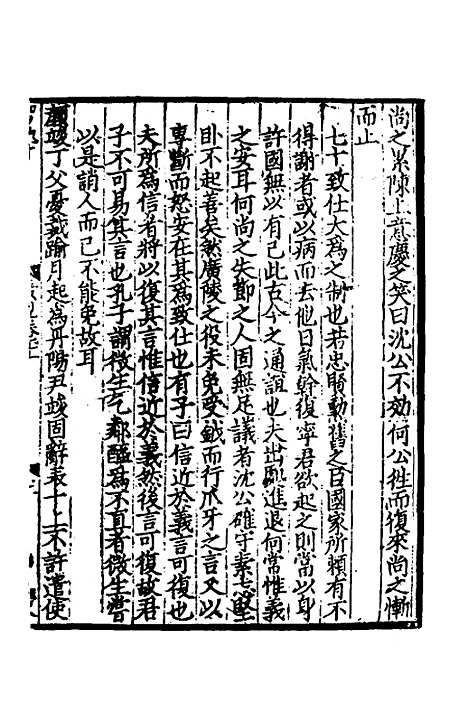 尚之累陳上意慶之笑曰沈公不效何公徃而復來尚之慚
而止
七十致仕大爲之制也若忠賢勳舊之臣國家所頼有不
得謝者或以病而去他日氣幹復寧君欲起之則當以身
許國無以有已此古今之通誼也夫出處進退何常惟義
之安耳何尚之失節之人固無足議者沈公確守素志堅
卧不起善矣然廣陵之役未免受鉞而行爪牙之言又以
專斷而怒安在其爲致仕也有子曰信近於義言可復也
夫所爲信者將以復其言惟信近於義然後言可復故君
子不可易其言也孔子謂微生乞鄰醯爲不直者微生嘗
以是誚人而已不能免故耳
顔竣丁父憂裁踰月起爲丹陽尹竣固辭表十上不許遣使